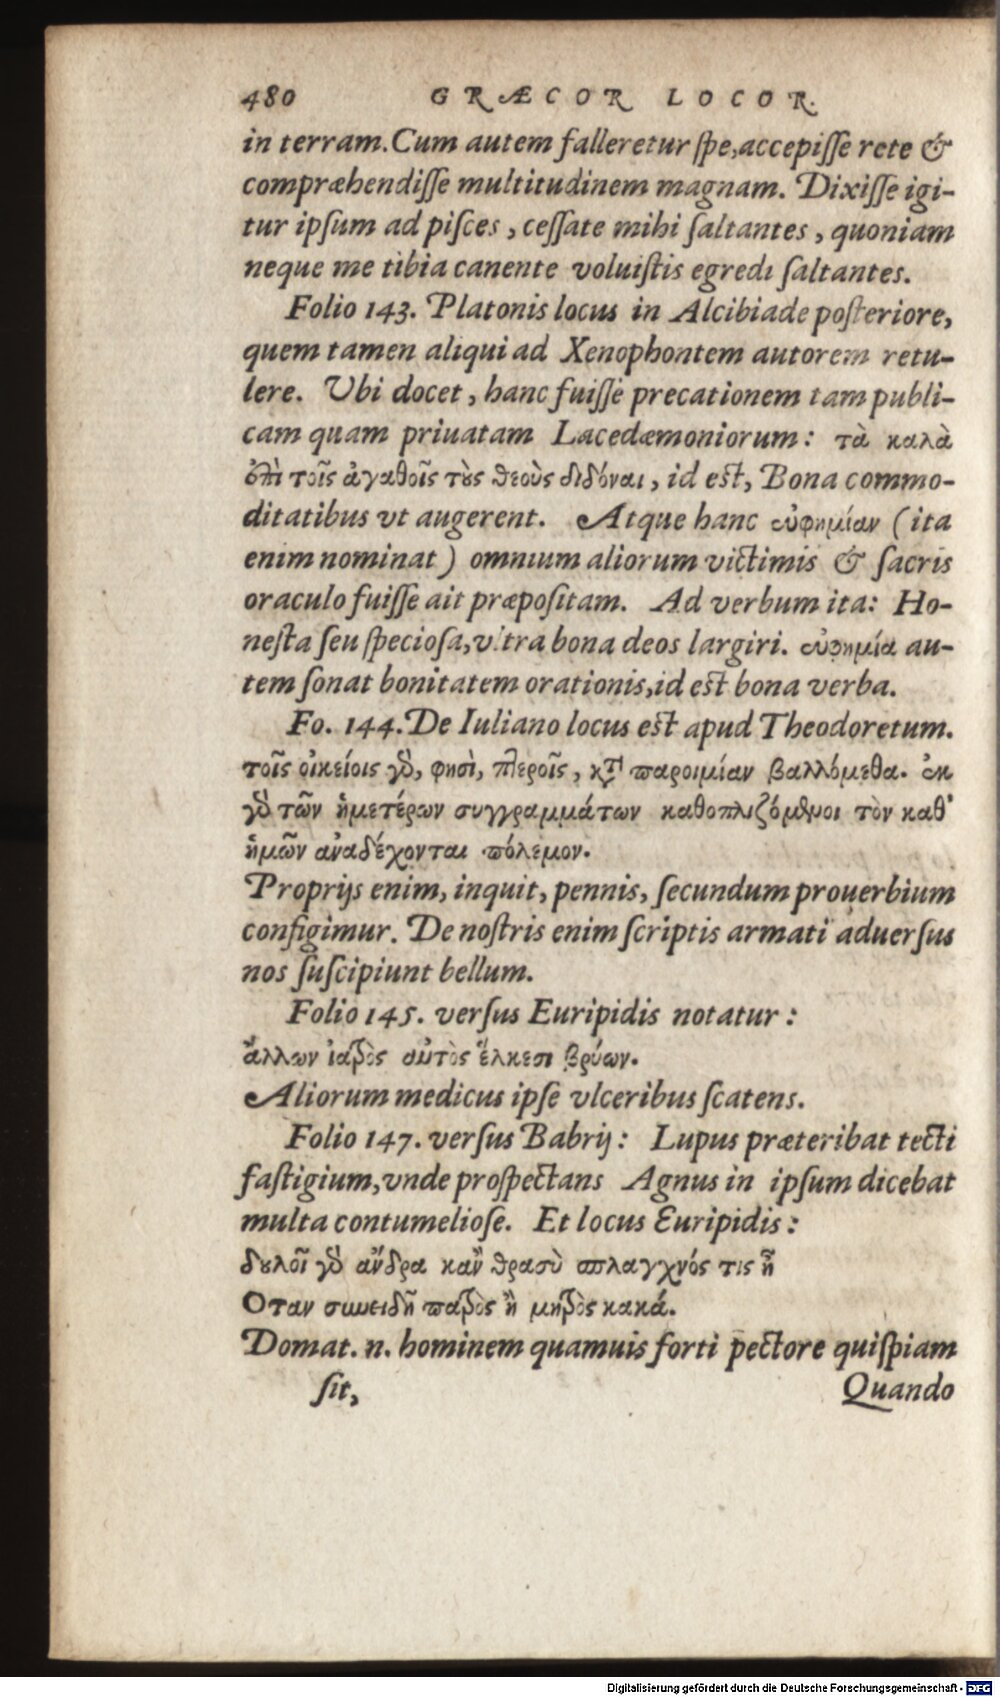 480 GRÆCOR LOCOR.
in terram. Cum autem falleretur ſpe, accepiſſe rete &
compræhendiſſe multitudinem magnam. Dixiſſe igi-
tur ipſum ad piſces, ceſſate mihi ſaltantes, quoniam
neque me tibia canente voluiſtis egredi ſaltantes.
Folio 143. Platonis locus in Alcibiade poſteriore,
quem tamen aliqui ad Xenophontem autorem retu-
lere. Vbi docet, hanc fuiſſe precationem tam publi-
cam quam priuatam Lacedæmoniorum: τὰ καλὰ
ἐπὶ τοῖς ἀγαθοῖς τοὺς θεοὺς διδόναι, id eſt, Bona commo-
ditatibus vt augerent. Atque hanc εὐφημίαν (ita
enim nominat) omnium aliorum victimis & ſacris
oraculo fuiſſe ait præpoſitam. Ad verbum ita: Ho-
neſta ſeu ſpecioſa, vltra bona deos largiri. εὐφημία au-
tem ſonat bonitatem orationis, id eſt bona verba.
Fo. 144. De Iuliano locus eſt apud Theodoretum.
τοῖς οἰκείοις γὸ, φησὶ, πτεροῖς, κτ̀ παροιμίαν βαλλόμεθα. ἐκ
γὸ τῶν ἡμετέρων συγγραμμάτων καθοπλιζόμενοι τὸν καθ'
ἡμῶν ἀναδέχονται πόλεμον.
Proprijs enim, inquit, pennis, ſecundum prouerbium
configimur. De noſtris enim ſcriptis armati aduerſus
nos ſuſcipiunt bellum.
Folio 145. verſus Euripidis notatur:
ἄλλων ἰατρὸς αὐτὸς ἕλκεσι βρύων.
Aliorum medicus ipſe vlceribus ſcatens.
Folio 147. verſus Babrij: Lupus præteribat tecti
faſtigium, vnde proſpectans Agnus in ipſum dicebat
multa contumelioſe. Et locus Euripidis:
δουλοῖ γὸ ἄνδρα κἂν θρασὺ σπλαγχνός τις ᾖ
Οταν συνειδῇ πατρὸς ἢ μητρὸς κακά.
Domat. n. hominem quamuis forti pectore quiſpiam
ſit, Quando
Digitalisierung gefördert durch die Deutsche Forschungsgemeinschaft - DFG